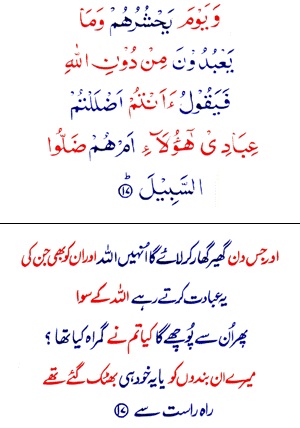 وَيَوْمَ يَحْشُرُهُمْ وَمَا
يَعْبُدُوْنَ مِنْ دُوْنِ اللهِ
فَيَقُوْلُ ءَاَنْتُمْ اَضْلَلْتُمْ
عِبَادِىْ هٰٓؤُلَآءِ اَمْ هُمْ ضَلُّوا
السَّبِيْلَ ؕ ﴿۱۷﴾
اور جس دن گھیر گھار کر لائے گا انہیں اللہ اور ان کو بھی جن کی
یہ عبادت کرتے رہے اللہ کے سوا
پھر اُن سے پُوچھے گا کیا تم نے گمراہ کیا تھا ؟
میرے ان بندوں کو یا یہ خود ہی بھٹک گئے تھے
راہ راست سے ﴿۱۷﴾